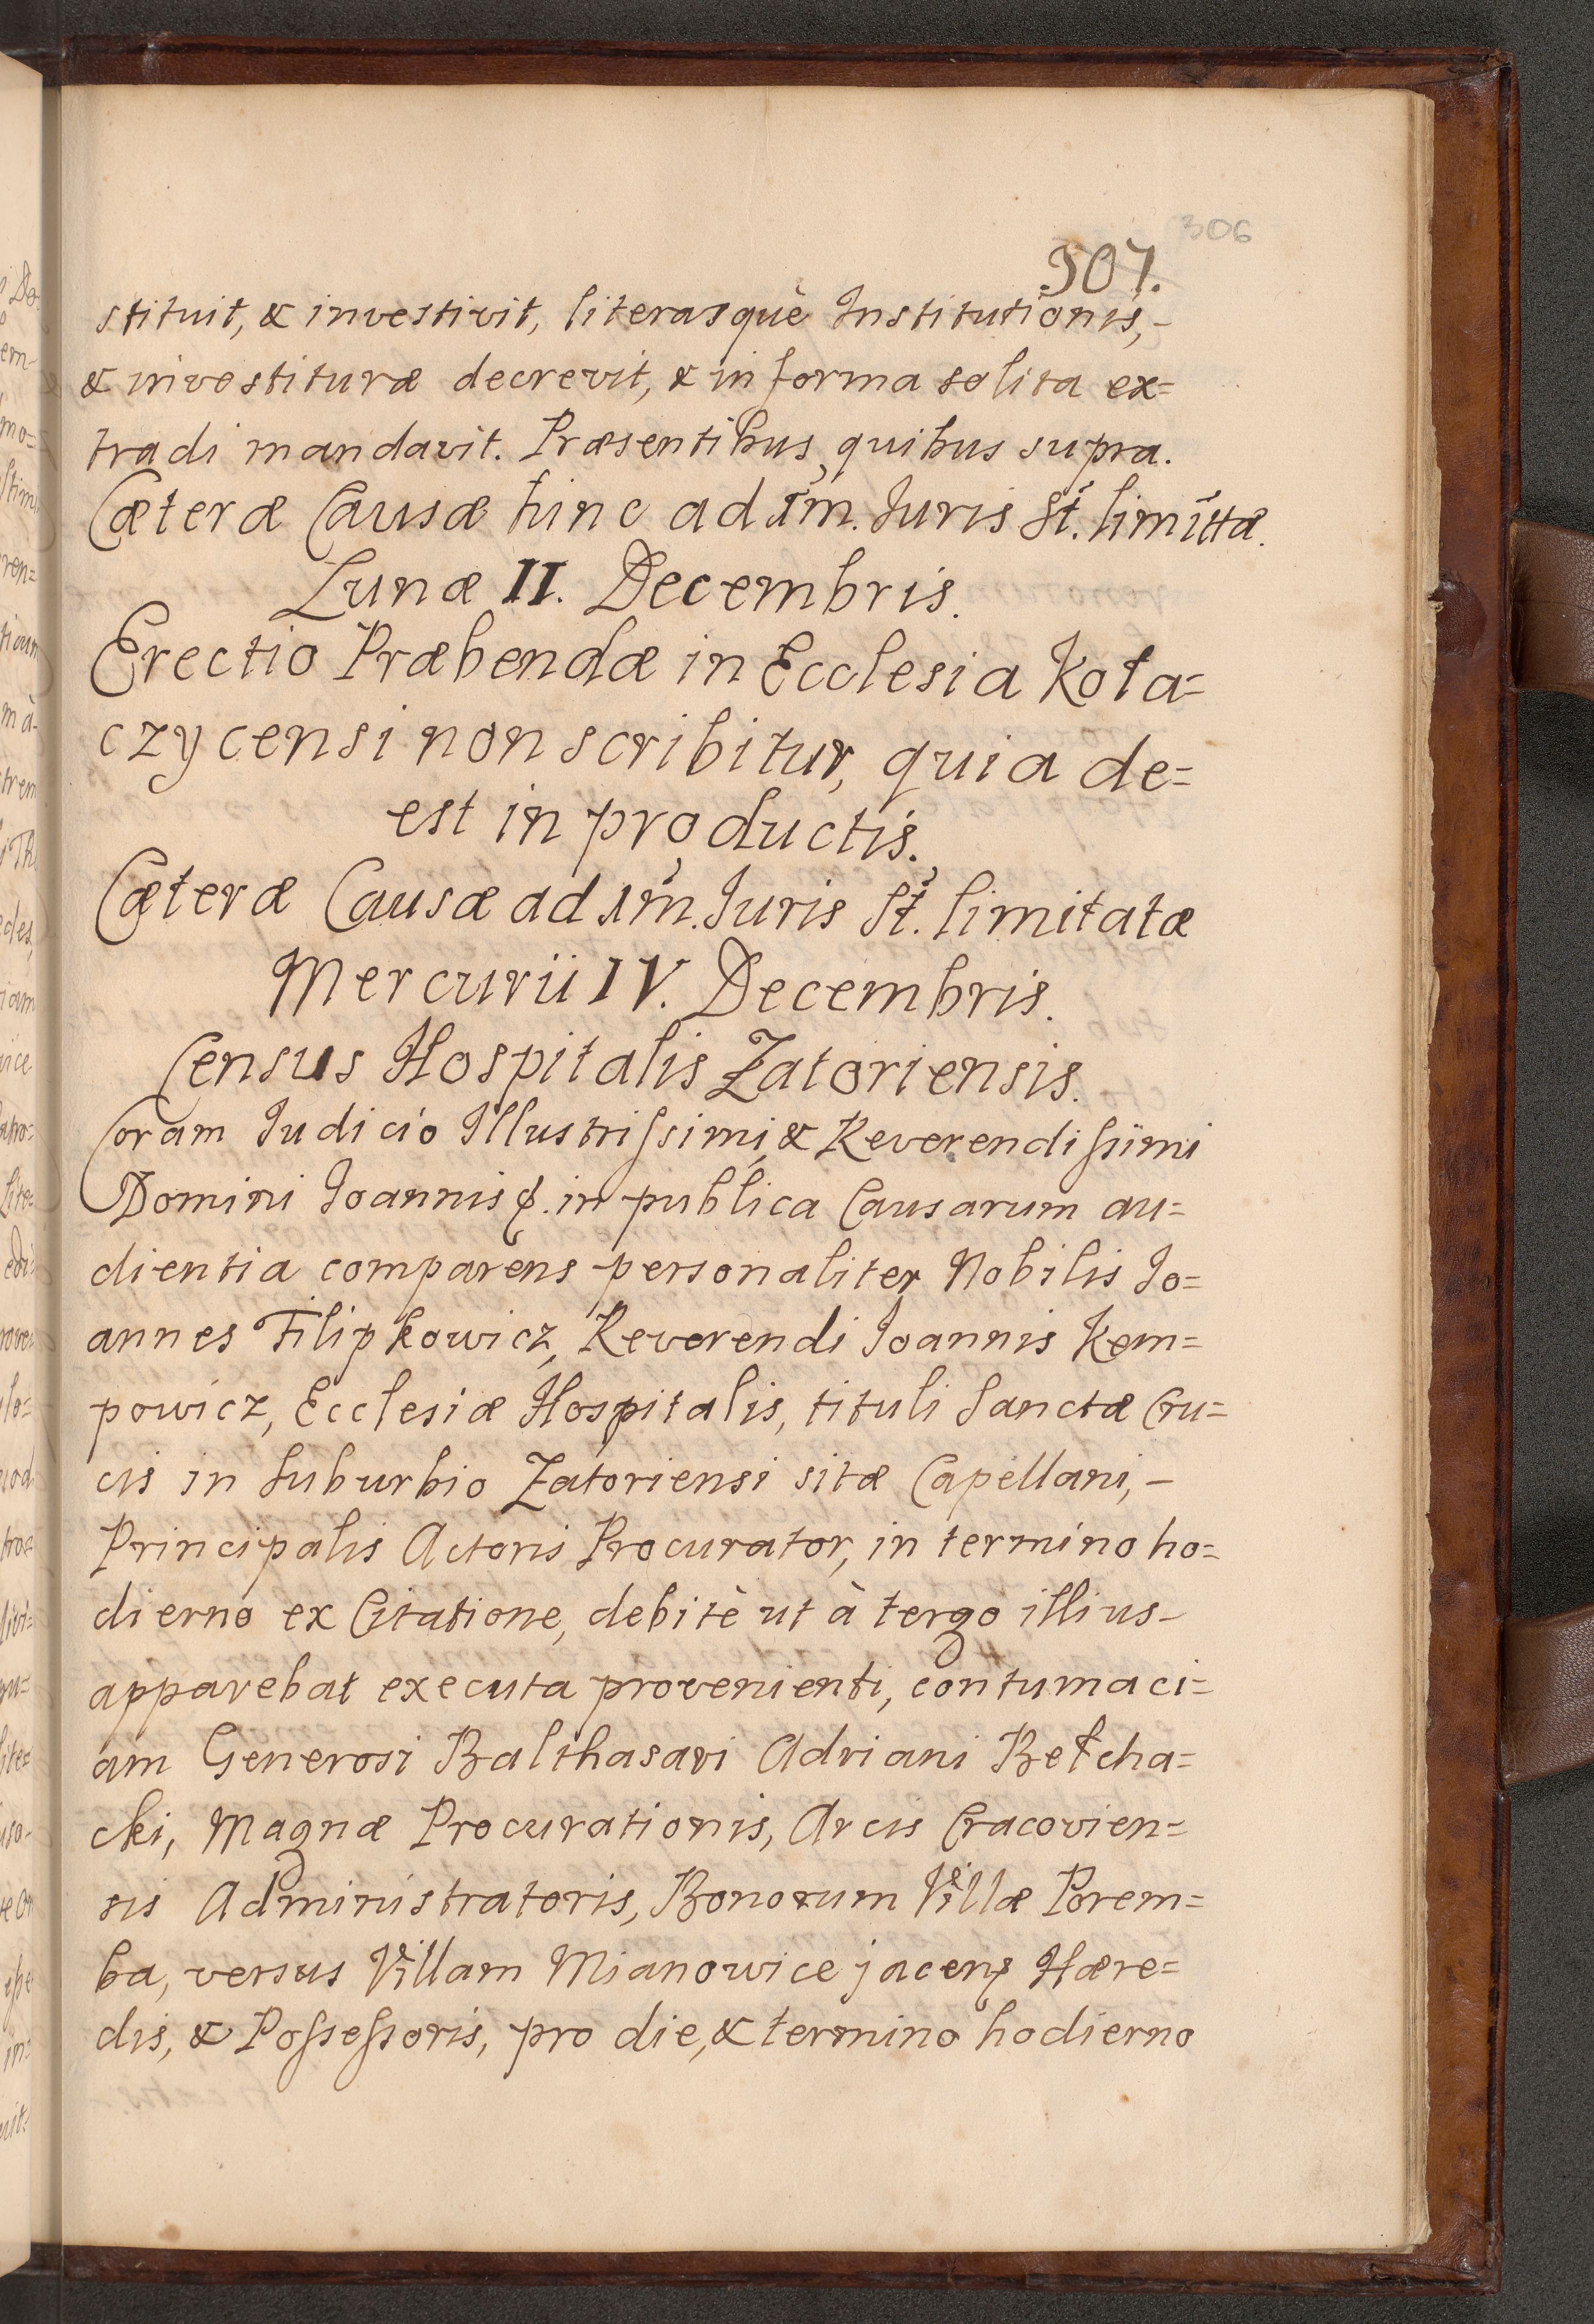 306
307.
stituit, & investivit, literasquè Institutionis,-
& investituræ decrevit, & in forma solita ex=
tradi mandavit. Præsentibus, quibus supra.
Cæteræ Causæ hinc ad 1m. Juris St. limittæ.
Lunæ II. Decembris.
Erectio Præbendæ in Ecclesia Koła=
czycensi non scribitur, quia de=
est in productis.
Cæteræ Causæ ad 1m. Juris St. limitatæ
Mercurii IV. Decembris.
Census Hospitalis Zatoriensis.
Coram Judicio Illustrissimi, & Reverendissimi
Domini Joannis &. in publica Causarum au=
dientia comparens personaliter Nobilis Jo=
annes Filipkowicz, Reverendi Joannis Kem=
powicz, Ecclesiæ Hospitalis, tituli Sanctæ Cru=
cis in Suburbio Zatoriensi sitæ Capellani,-
Principalis Actoris Procurator, in termino ho=
dierno ex Citatione, debitè ut à tergo illius-
apparebat executa provenienti, contumaci=
am Generosi Balthasari Adriani Bełcha=
cki, Magnæ Procurationis, Arcis Cracovien=
sis Administratoris, Bonorum Villæ Porem=
ba, versus Villam Mianowice jacen Hære=
dis, & Possessoris, pro die, & termino hodierno